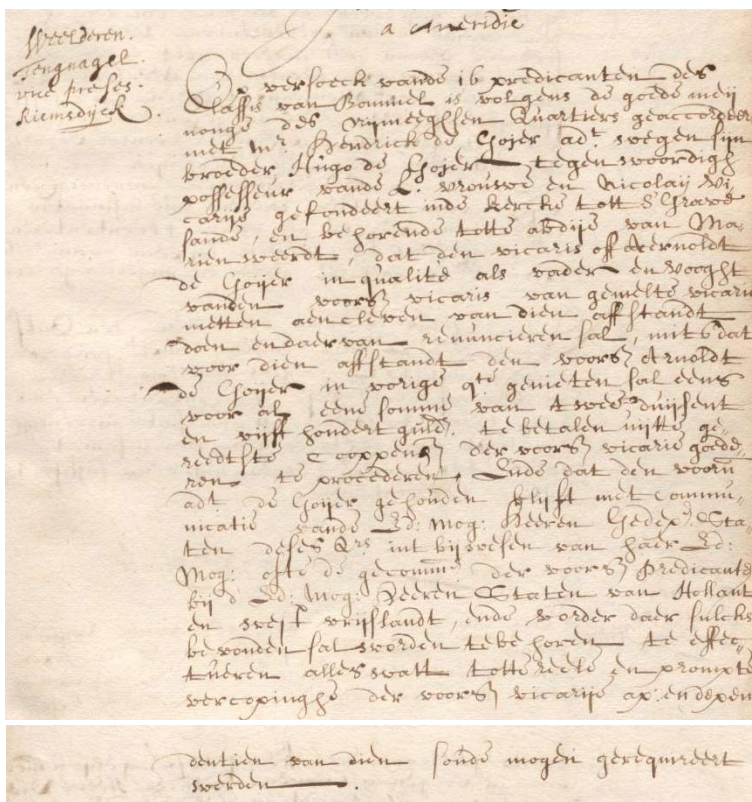 a meridie
Weelderen.
Tengnagel.
vne preses.
Riemsdijck.
Op versoeck vande 16 predicanten des
Classis van Bommel is volgens de goede meij
nonge des Nijmeeghsen Quartiers geaccordeert
met Mr. Hendrick de Goijer adt. wegen sijn
broeder Hugo de Goijer tegenwoordigh
possesseur vande L. vrouwe en Nicolaij Vi
carije gefondeert inde kercke tott s Grave
sande, en behorende totte abdije van Ma,
rienweerdt, dat den vicaris off Aernoldt
de Goijer in qualite als vader en vooght
vanden voors vicaris van gemelte vicarie
metten aencleven van dien affstandt
doen en daervan renuncieren sal, mits dat
voor dien affstandt den voors Arnoldt
de Goijer in vorige qte genieten sal eens
voor al eene somme van twee duijsent
en vijff hondert guld. te betalen uijtte ge,
reedtste cooppen der voors vicarie goede,
ren te procederen. Ende dat den voorn
adt. de Goijer gehouden blijft met commu,
nicatie vande Ed: Mog: Heeren Gedep. Sta,
ten deses Qrs. int bijwesen van haer Ed:
Mog: ofte de gecomme. der voors Predicante
bij d Ed: Mog: Heeren Staten van Hollant
en west vrijslandt, ende vorder daer sulcks
bevonden sal worden te behoren te effec,
tueren alles watt totte reele en prompte
vercopinghe der voors vicarije ap: en depen
dentien van dien soude mogen gerequireert
werden.